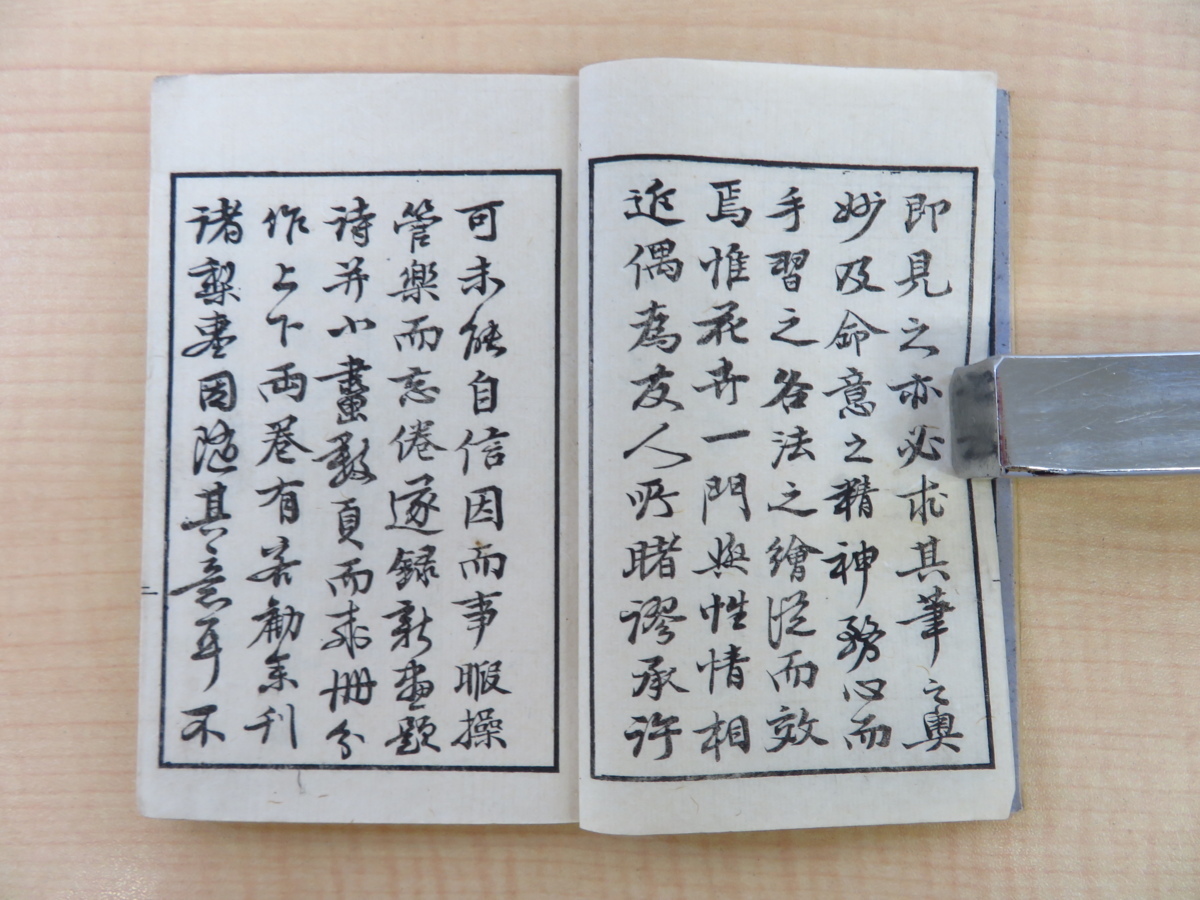 即見之亦必求其筆之奧
妙及命意之精神務心而
手習之各法之繪從而效
焉惟花卉一門與性情相
近偶為友人所睹謬承許
可未能自信因而事暇操
管樂而忘倦遂錄新畫題
詩并小畫數頁而成冊分
作上下两卷有客勸余刊
諸梨棗因隨其意耳不